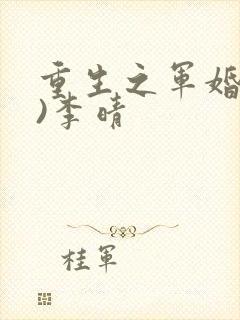 重生之军婚
)李晴
桂军